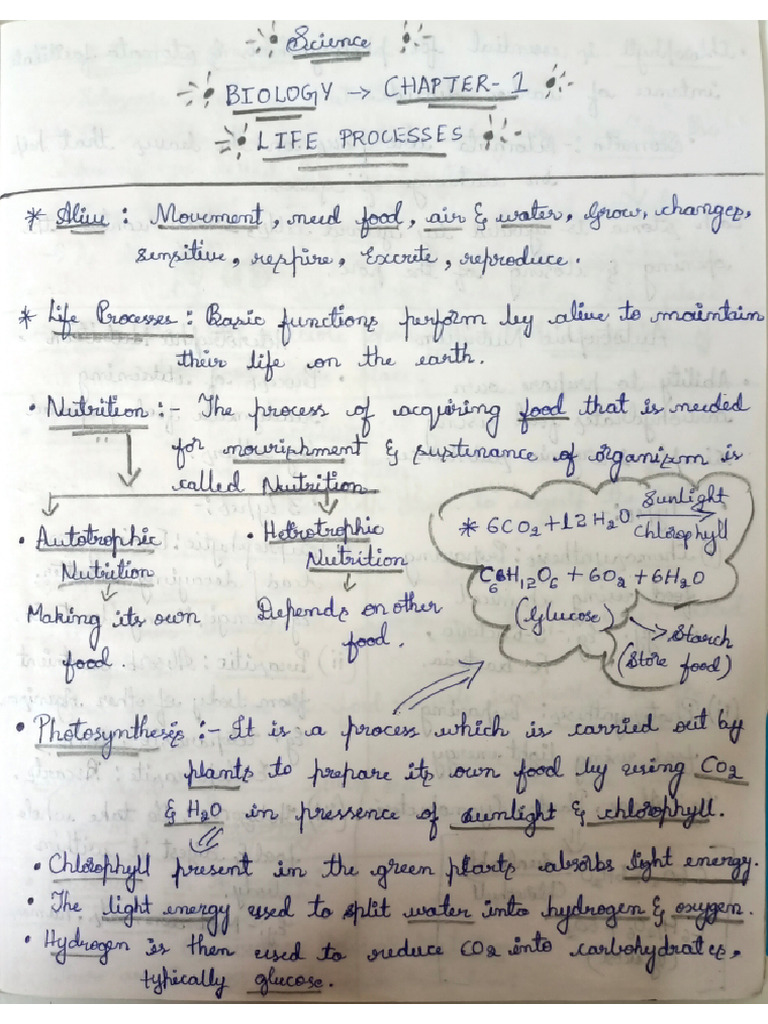 Science
BIOLOGY → CHAPTER-1
LIFE PROCESSES
* Alive : Movement, need food, air & water, Grow, changes,
sensitive, respire, Excrete, reproduce.
* Life Processes : Basic functions perform by alive to maintain
their life on the earth.
• Nutrition :- The process of acquiring food that is needed
for nourishment & sustenance of organism is
called Nutrition
• Autotrophic
Nutrition
Making its own
food.
• Hetrotrophic
Nutrition
Depends on other
food.
* 6CO2 + 12H2O Sunlight
Chlorophyll
C6H12O6 + 6O2 + 6H2O
(Glucose) → Starch
(Store food)
• Photosynthesis :- It is a process which is carried out by
plants to prepare its own food by using CO2
& H2O in pressence of sunlight & chlorophyll.
• Chlorophyll present in the green plants absorbs light energy.
• The light energy used to split water into hydrogen & oxygen.
• Hydrogen is then used to reduce CO2 into carbohydrates,
typically glucose.